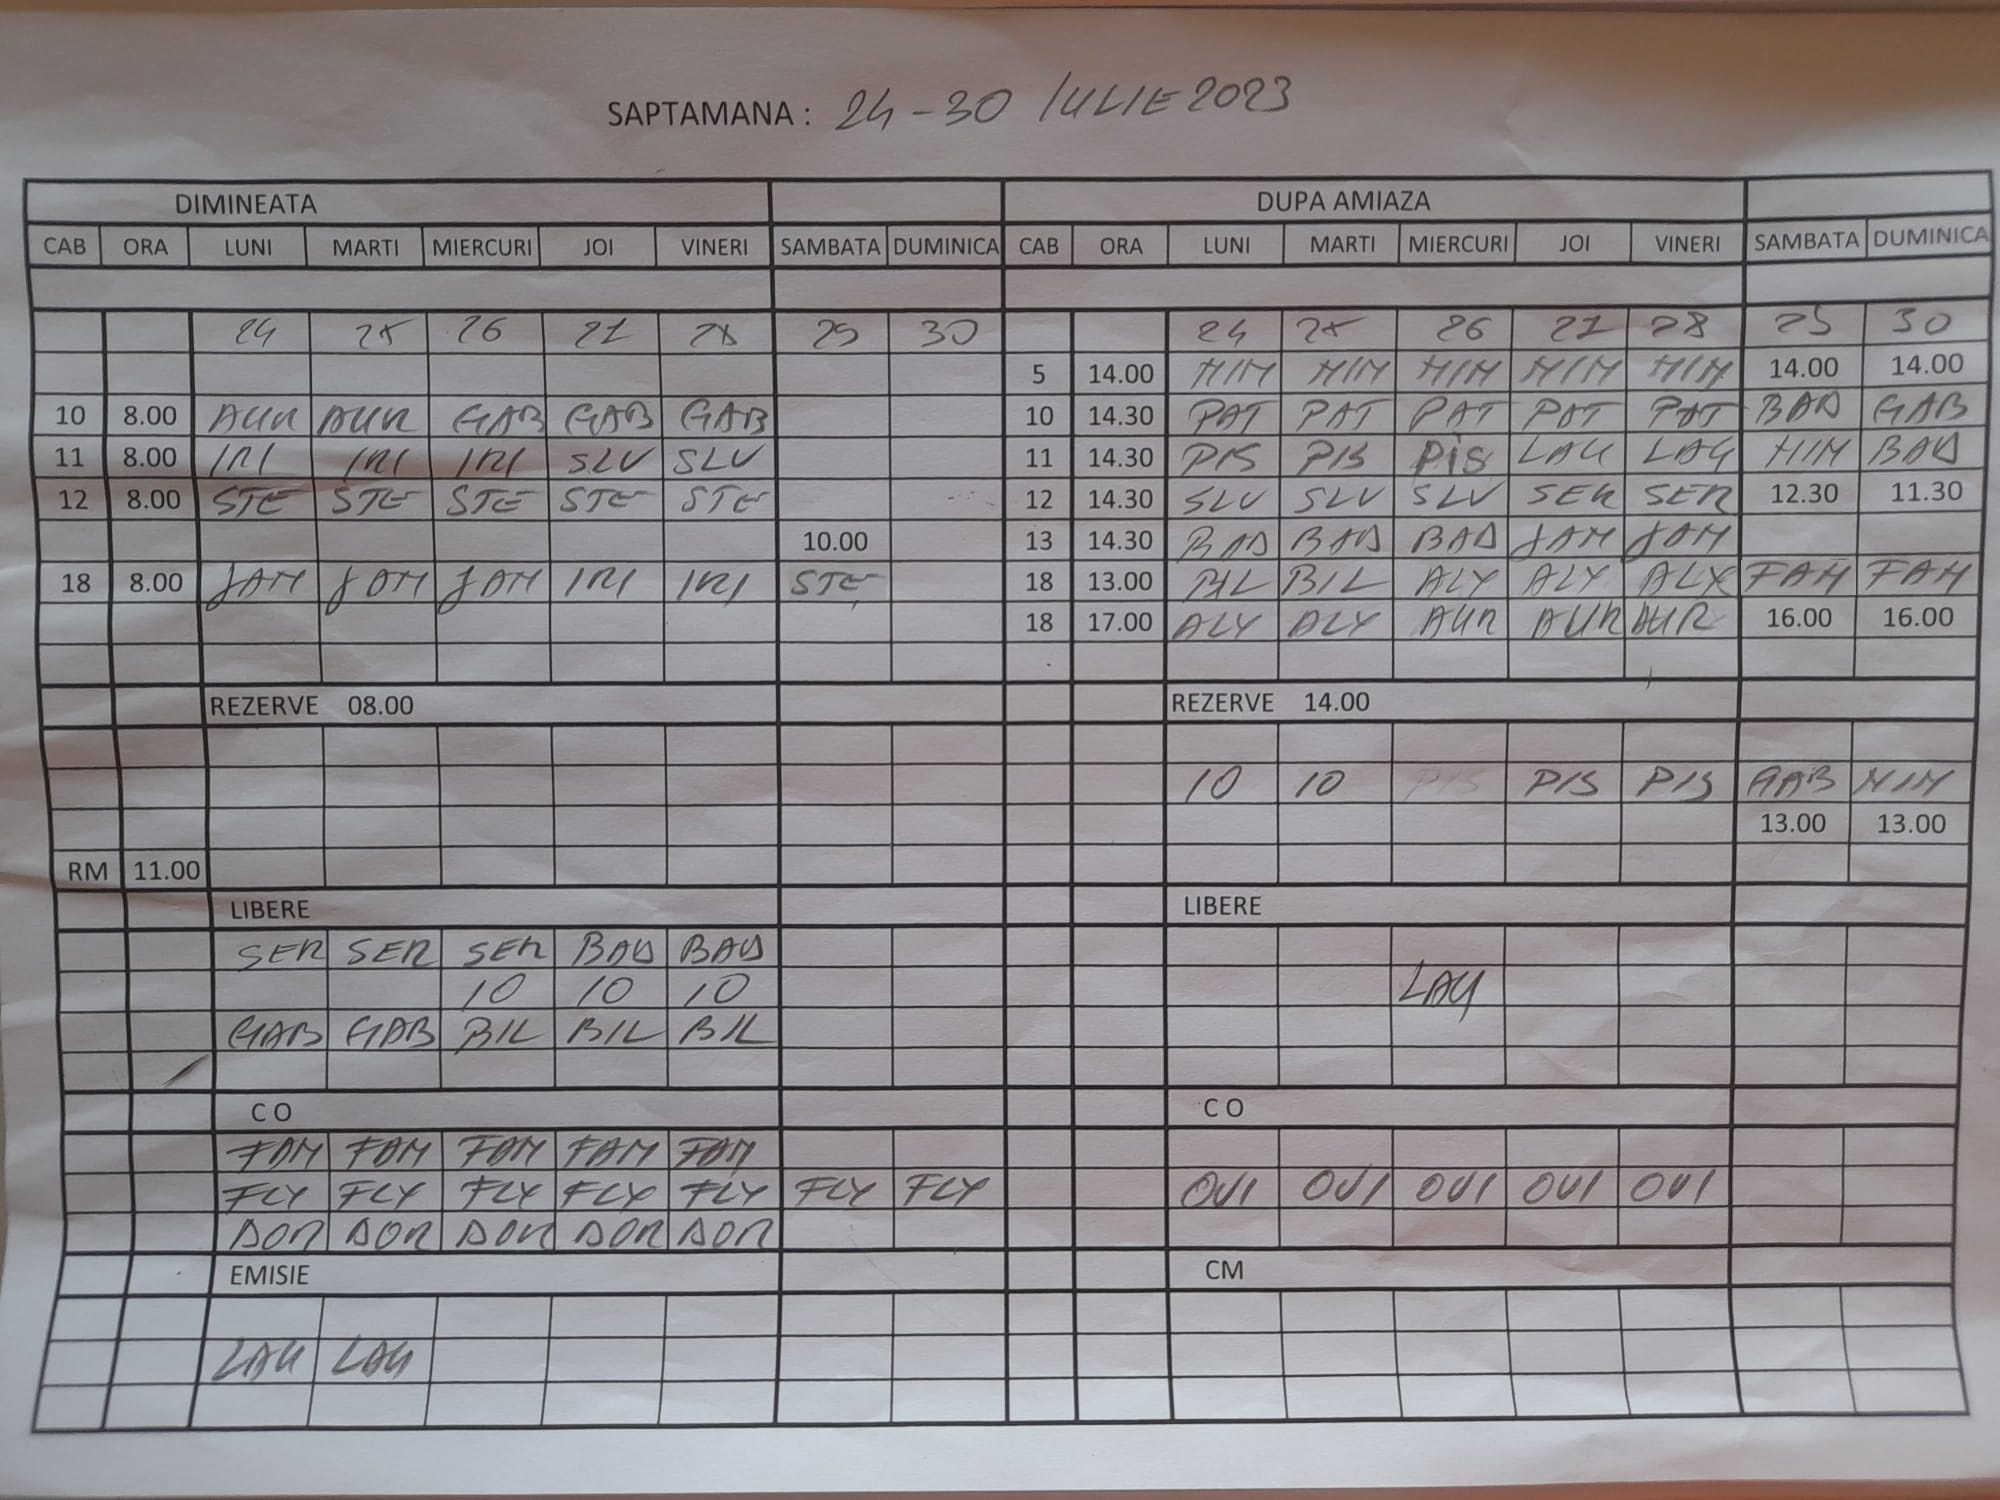 SAPTAMANA : 24-30 IULIE 2023
DIMINEATA DUPA AMIAZA
CAB ORA LUNI MARTI MIERCURI JOI VINERI SAMBATA DUMINICA CAB ORA LUNI MARTI MIERCURI JOI VINERI SAMBATA DUMINICA
24 25 26 27 28 29 30 24 25 26 27 28 29 30
5 14.00 MIM MIM MIM MIM MIM 14.00 14.00
10 8.00 AUR AUR GAB GAB GAB 10 14.30 PAT PAT PAT PAT PAT BAD GAB
11 8.00 IRI IRI IRI SLV SLV 11 14.30 PIS PIS PIS LAU LAU MIM BAD
12 8.00 STE STE STE STE STE 12 14.30 SLV SLV SLV SER SER 12.30 11.30
10.00 13 14.30 BAD BAD BAD JAM JAM
18 8.00 JAM JAM JAM IRI IRI STE 18 13.00 BIL BIL ALY ALY ALY FAM FAM
18 17.00 ALY ALY AUR AUR AUR 16.00 16.00
REZERVE 08.00 REZERVE 14.00
10 10 PIS PIS PIS GAB MIM
13.00 13.00
RM 11.00
LIBERE LIBERE
SER SER SER BAD BAD
10 10 10 LAU
GAB GAB BIL BIL BIL
C O C O
FAM FAM FAM FAM FAM
FLY FLY FLY FLY FLY FLY FLY OVI OVI OVI OVI OVI
DOR DOR DOR DOR DOR
EMISIE CM
LAU LAU